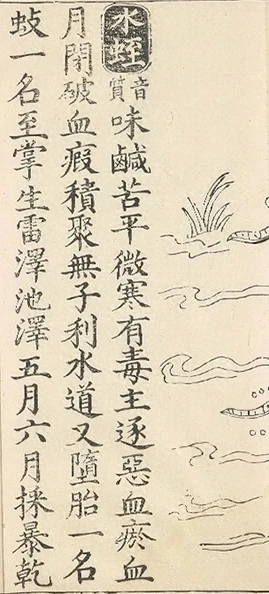 水蛭音質味鹹苦平微寒有毒主逐惡血瘀血
月閉破血瘕積聚無子利水道又墮胎一名
蚑一名至掌生雷澤池澤五月六月採暴乾